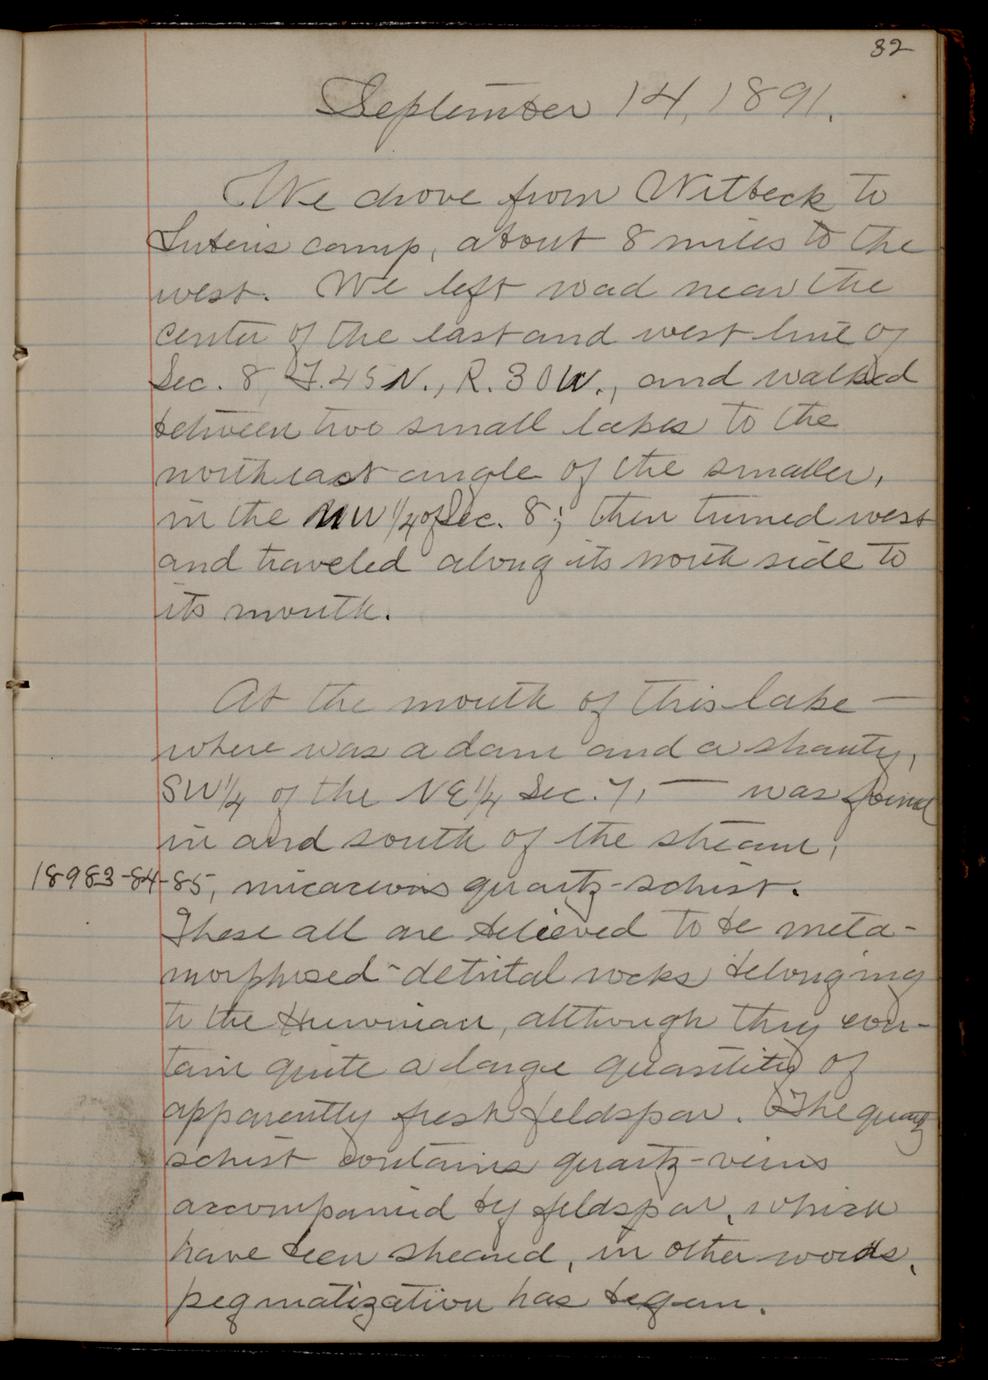 32
September 14, 1891.
We drove from Witbeck to
camp, about 8 miles to the
west. We left road near the
center of the east and west line of
Sec. 8, T. 45 N., R. 30 W., and walked
between two small lakes to the
northeast angle of the smaller,
in the NW 1/4 of Sec. 8; then turned west
and traveled along its north side to
its mouth.
At the mouth of this lake —
where was a dam and a shanty,
SW 1/4 of the NE 1/4 Sec. 7, — was found
in and south of the stream,
18983-84-85, micaceous quartz-schist.
These all are believed to be meta-
morphosed detrital rocks belonging
to the Huronian, although they con-
tain quite a large quantity of
apparently fresh feldspar. The quartz
schist contains quartz-veins
accompanied by feldspar, which
have been sheared, in other words,
pegmatization has begun.